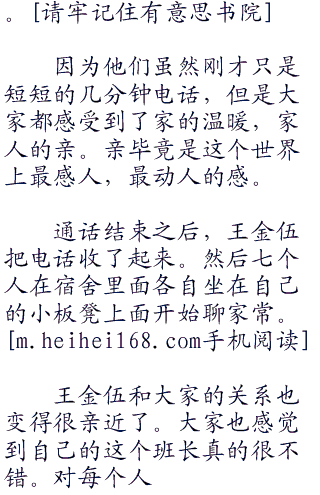 。[请牢记住有意思书院]
因为他们虽然刚才只是
短短的几分钟电话，但是大
家都感受到了家的温暖，家
人的亲。亲毕竟是这个世界
上最感人，最动人的感。
通话结束之后，王金伍
把电话收了起来。然后七个
人在宿舍里面各自坐在自己
的小板凳上面开始聊家常。
[m.heihei168.com手机阅读]
王金伍和大家的关系也
变得很亲近了。大家也感觉
到自己的这个班长真的很不
错。对每个人